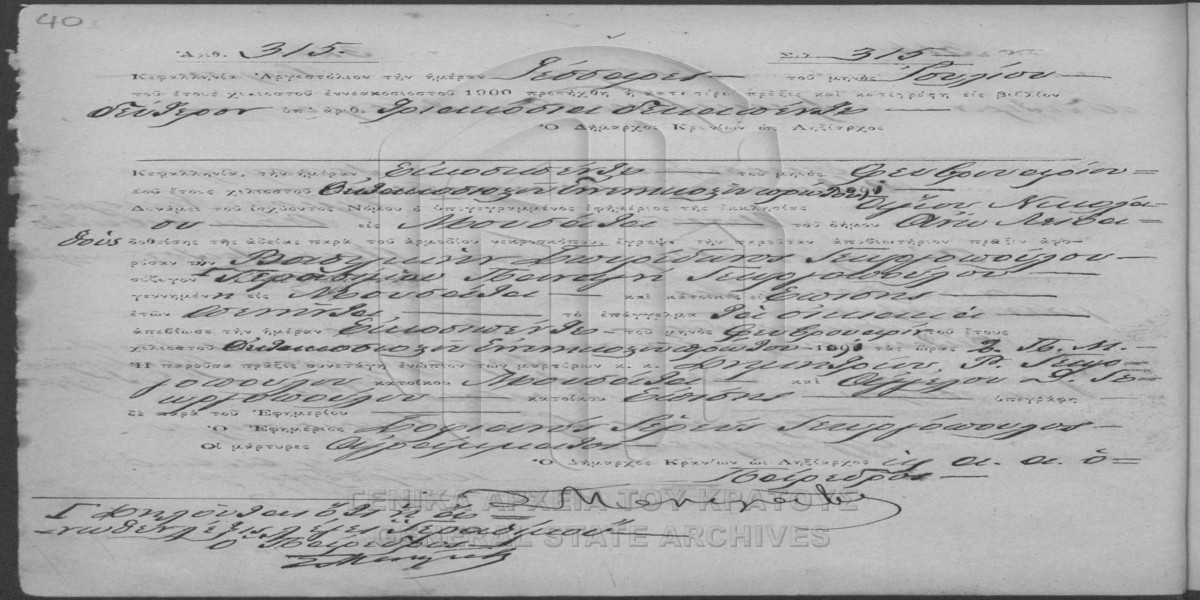 40
Ἀριθ. 315. Σελ. 315
Κεφαλληνία Ἀργοστόλιον τὴν ἡμέραν Τέσσαρες τοῦ μηνὸς Ἰουλίου
τοῦ ἔτους χιλιοστοῦ ἐννεακοσιοστοῦ 1900 προσήχθη ἡ κατωτέρω πρᾶξις καὶ κατεγράφη εἰς βιβλίον
δεύτερον ὑπ' ἀριθ. τριακόσια δεκαπέντε
Ὁ Δήμαρχος Κρανίων ὡς Ληξίαρχος
Κεφαλληνία, τὴν ἡμέραν Εἰκοσιπέντε τοῦ μηνὸς Φευβρουαρίου
τοῦ ἔτους χιλιοστοῦ Ὀκτακοσιοστοῦ ἐννενηκοστοῦ πρώτου 1891
Δυνάμει τοῦ ἰσχύοντος Νόμου ὁ ὑπογεγραμμένος ἐφημέριος τῆς ἐκκλησίας Ἁγίου Νικολά=
ου εἰς Μουσάτα τοῦ δήμου
δοθείσης τῆς ἀδείας παρὰ τοῦ ἁρμοδίου νεκροσκόπου, ἔγραψα τὴν παροῦσαν ἀποβιωτήριον πρᾶξιν ἀφο-
ρῶσαν τὴν Βασιλικὴν Σπυρίδωνος Γεωργοπούλου
σύζυγον Γερασίμου Παναγῆ Γεωργοπούλου
γεννημένη εἰς Μουσάτα καὶ κάτοικος εἰς Ἐπίσης
ἐτῶν πενῆντα τὸ ἐπάγγελμα τὰ οἰκιακά
ἀπεβίωσε τὴν ἡμέραν Εἰκοσιπέντε τοῦ μηνὸς Φευβρουαρίου τοῦ ἔτους
χιλιοστοῦ Ὀκτακοσιοστοῦ ἐννενηκοστοῦ πρώτου 1891 τὰς ὥρας 2 Π. Μ.
Ἡ παροῦσα πρᾶξις συνετάγη ἐνώπιον τῶν μαρτύρων κ. κ. Δημητρίου Γ. Γεωρ=
γοπούλου κατοίκου Μουσάτα καὶ Ἀγγέλου Γε=
ωργοπούλου κατοίκου Ἐπίσης ὑπεγράφη
δὲ παρὰ τοῦ Ἐφημερίου
Ὁ Ἐφημέριος Ἱερεὺς Γεωργόπουλος
Οἱ μάρτυρες Ἀγράμματοι
Ὁ Δήμαρχος Κρανίων ὡς Ληξίαρχος κ. α. α. ὁ=
Πάρεδρος
ΓΕΝΙΚΑ ΑΡΧΕΙΑ ΤΟΥ ΚΡΑΤΟΥΣ
GENERAL STATE ARCHIVES
Ὁ Πάρεδρος